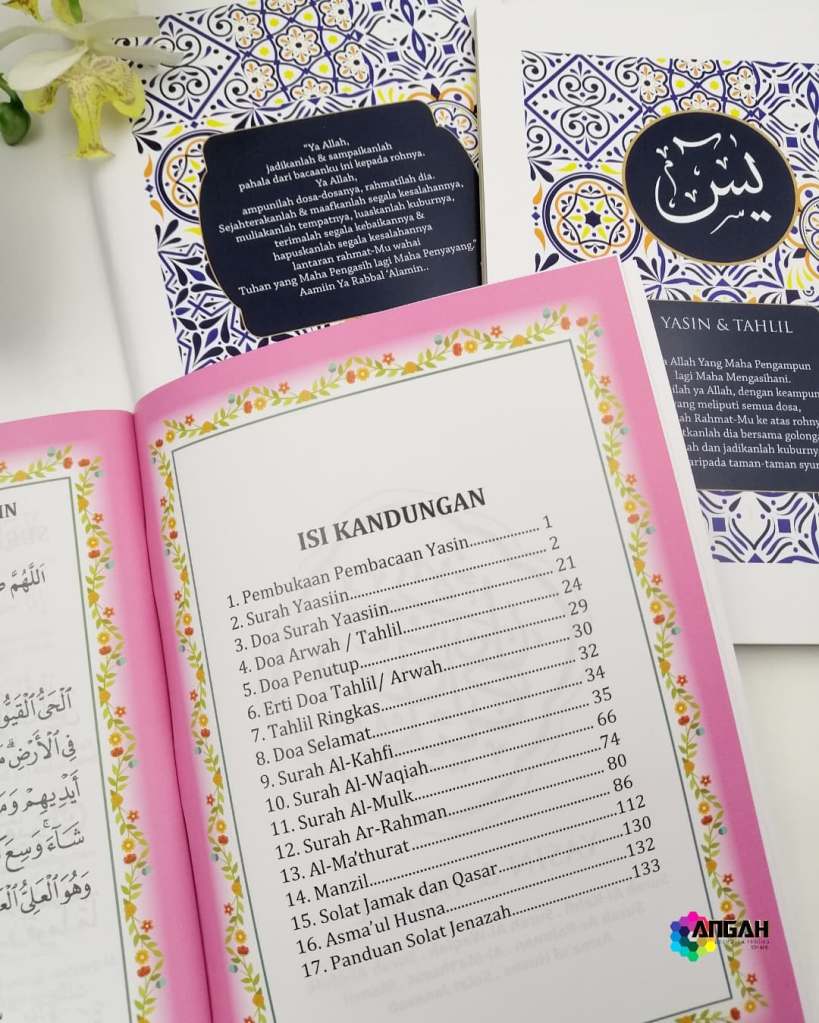 "Ya Allah,
jadikanlah & sampaikanlah
pahala dari bacaanku ini kepada rohnya.
Ya Allah,
ampunilah dosa-dosanya, rahmatilah dia.
Sejahterakanlah & maafkanlah segala kesalahannya,
muliakanlah tempatnya, luaskanlah kuburnya,
terimalah segala kebaikannya &
hapuskanlah segala kesalahannya
lantaran rahmat-Mu wahai
Tuhan yang Maha Pengasih lagi Maha Penyayang,"
Aamiin Ya Rabbal 'Alamin..
يس
YASIN & TAHLIL
a Allah Yang Maha Pengampun
lagi Maha Mengasihani.
ilah ya Allah, dengan keampun
yang meliputi semua dosa,
ah Rahmat-Mu ke atas rohny
tkanlah dia bersama golonga
ah dan jadikanlah kuburny
aripada taman-taman syur
IN
اَللّٰهُمَّ
اَلْحَيُّ الْقَيُّو
فِى الْأَرْضِ
أَيْدِيهِمْ وَمَ
شَآءَ وَسِعَ
وَهُوَ الْعَلِيُّ الْعَ
ISI KANDUNGAN
1. Pembukaan Pembacaan Yasin................. 1
2. Surah Yaasiin.................................. 2
3. Doa Surah Yaasiin........................... 21
4. Doa Arwah / Tahlil.......................... 24
5. Doa Penutup................................... 29
6. Erti Doa Tahlil/ Arwah..................... 30
7. Tahlil Ringkas................................. 32
8. Doa Selamat................................... 34
9. Surah Al-Kahfi................................ 35
10. Surah Al-Waqiah........................... 66
11. Surah Al-Mulk...............................74
12. Surah Ar-Rahman......................... 80
13. Al-Ma'thurat................................ 86
14. Manzil........................................112
15. Solat Jamak dan Qasar................130
16. Asma'ul Husna............................132
17. Panduan Solat Jenazah................133
ANGAH